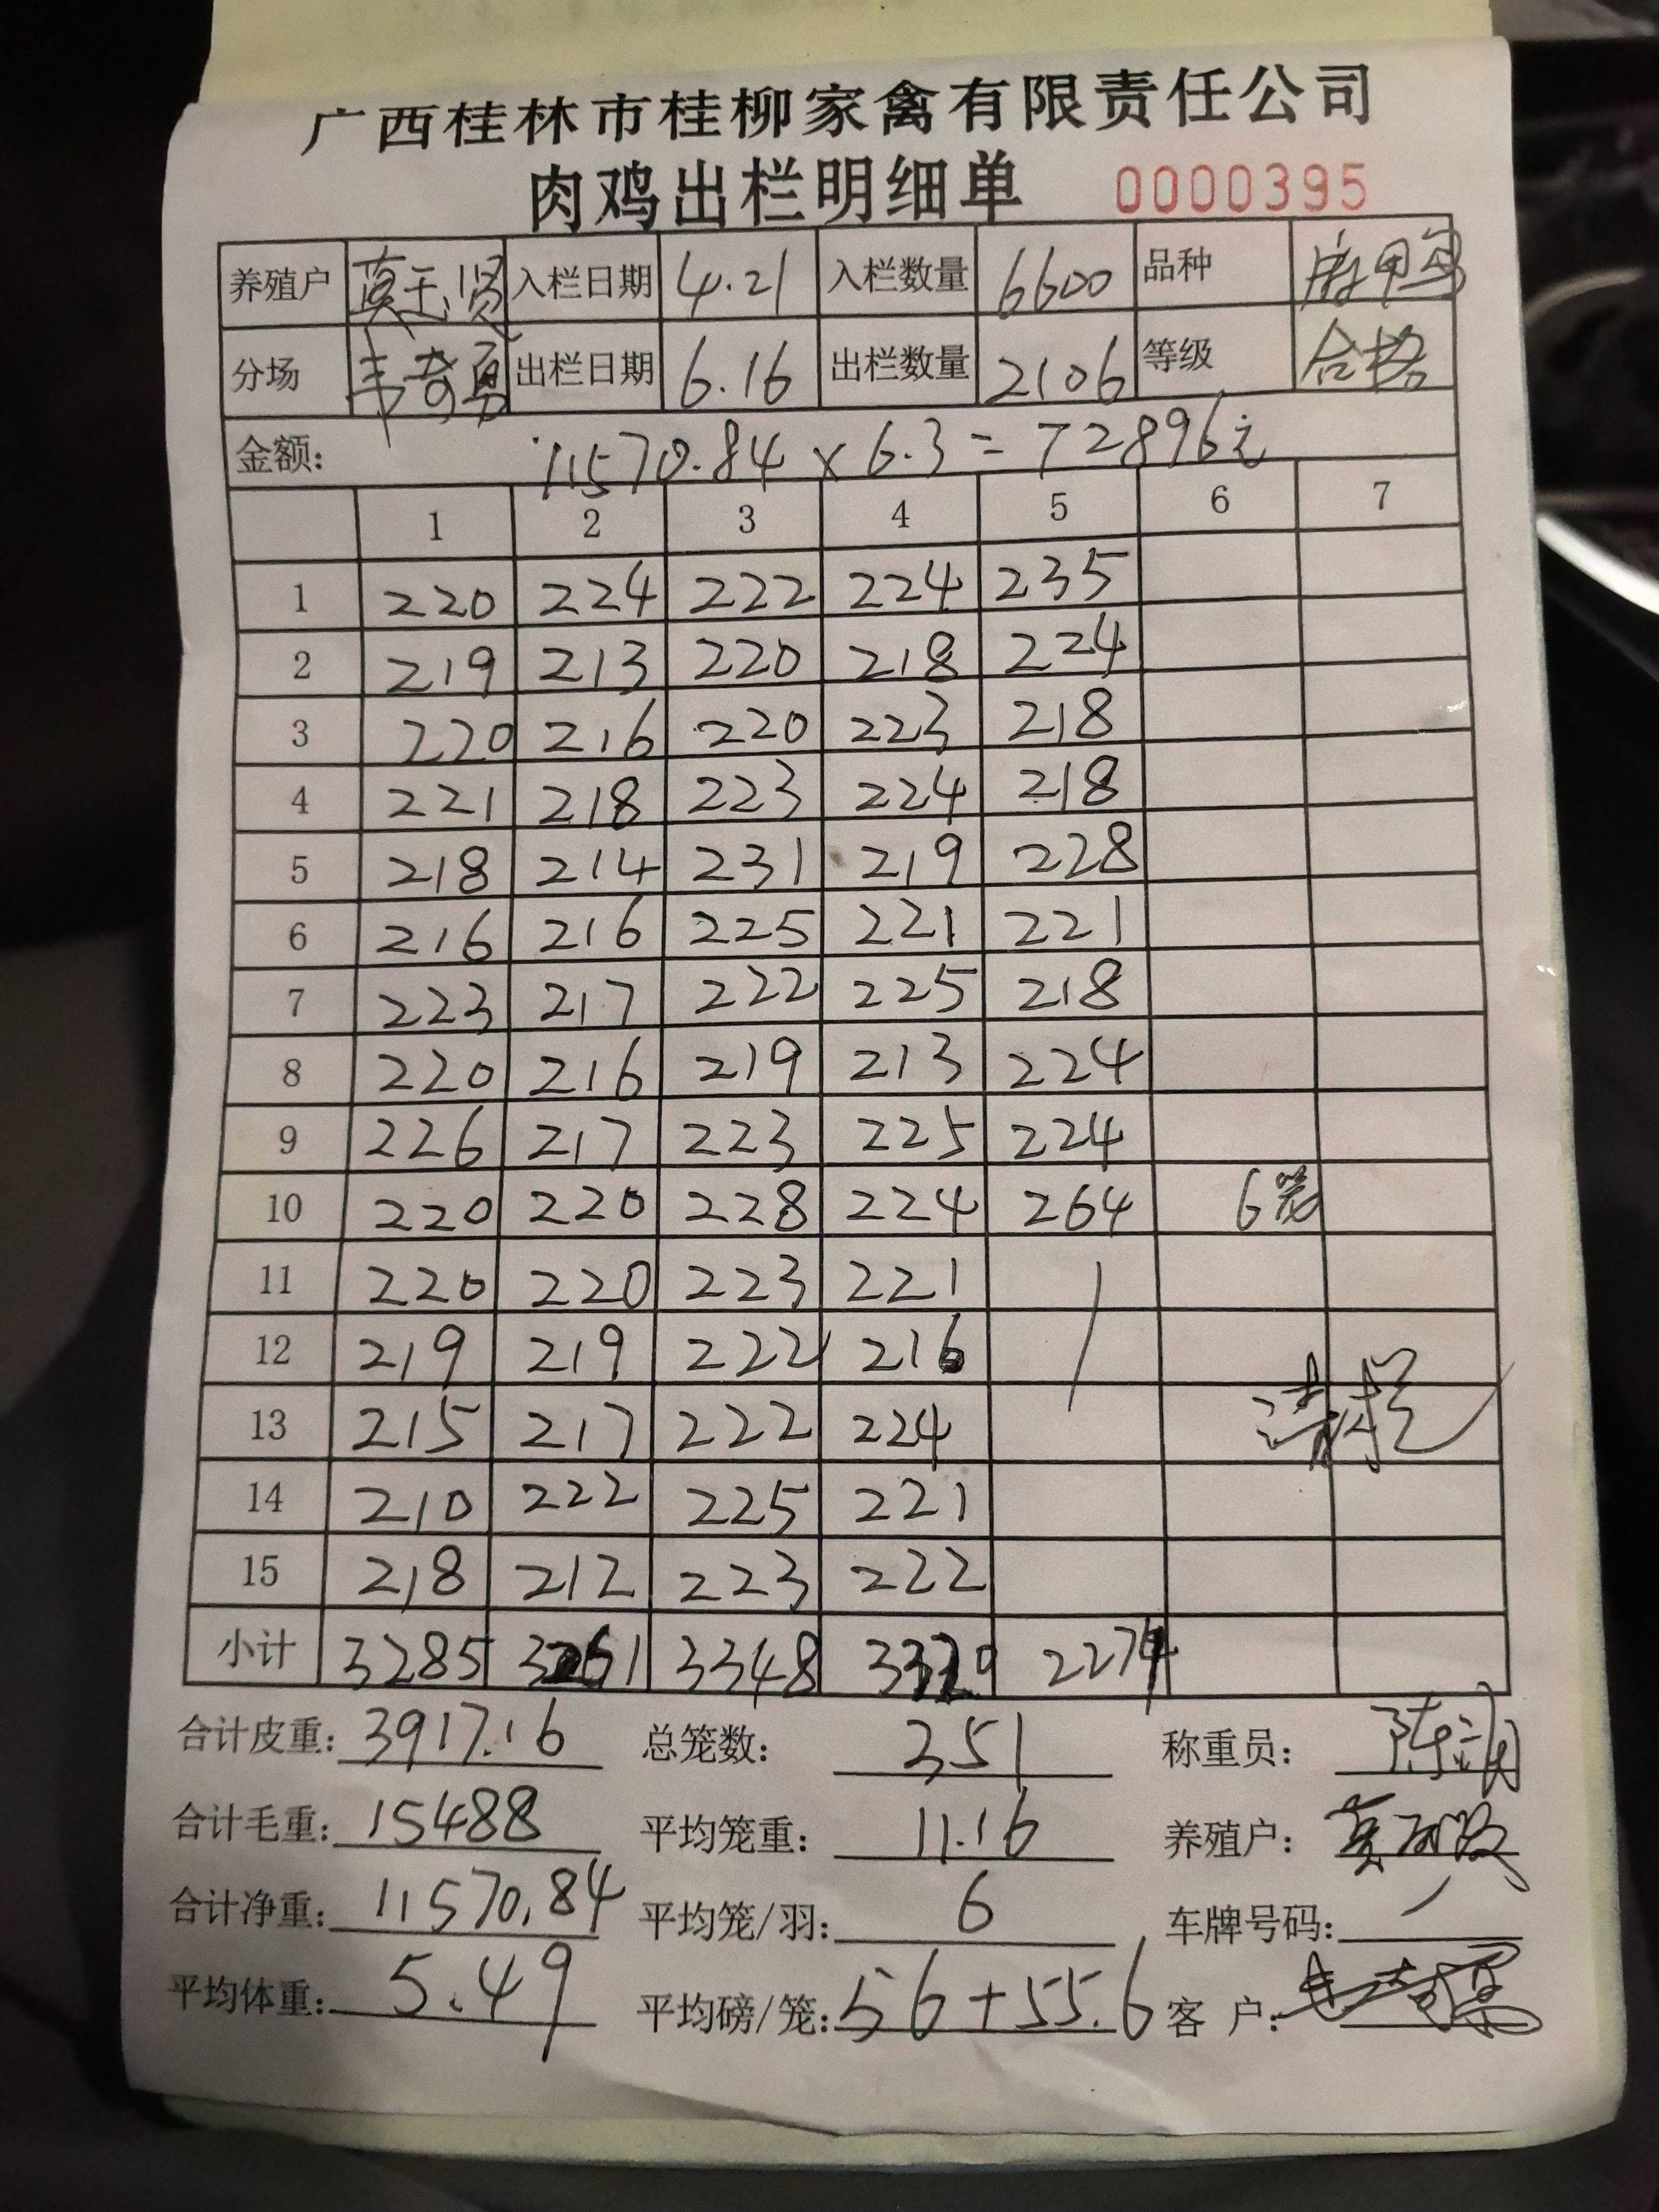 广西桂林市桂柳家禽有限责任公司
肉鸡出栏明细单 0000395
养殖户 莫玉贤 入栏日期 4.21 入栏数量 6600 品种 麻鸭
分场 韦奇勇 出栏日期 6.16 出栏数量 2106 等级 合格
金额: 11570.84 x 6.3 = 72896元
1 2 3 4 5 6 7
1 220 224 222 224 235
2 219 213 220 218 224
3 220 216 220 223 218
4 221 218 223 224 218
5 218 214 231 219 228
6 216 216 225 221 221
7 223 217 222 225 218
8 220 216 219 213 224
9 226 217 223 225 224
10 220 220 228 224 264 6笼
11 220 220 223 221
12 219 219 222 216
13 215 217 222 224
14 210 222 225 221
15 218 212 223 222
小计 3285 3261 3348 3320 2274
合计皮重: 3917.16 总笼数: 351 称重员:
合计毛重: 15488 平均笼重: 11.16 养殖户:
合计净重: 11570.84 平均笼/羽: 6 车牌号码: /
平均体重: 5.49 平均磅/笼: 56+55.6 客 户: